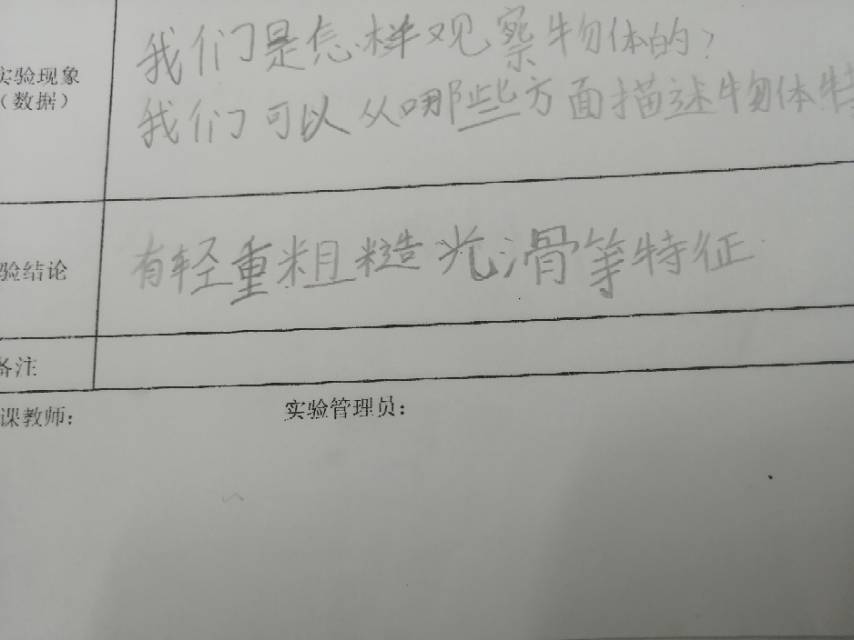 实验现象
（数据）
我们是怎样观察物体的？
我们可以从哪些方面描述物体特
验结论
有轻重粗糙光滑等特征
备注
课教师：
实验管理员：